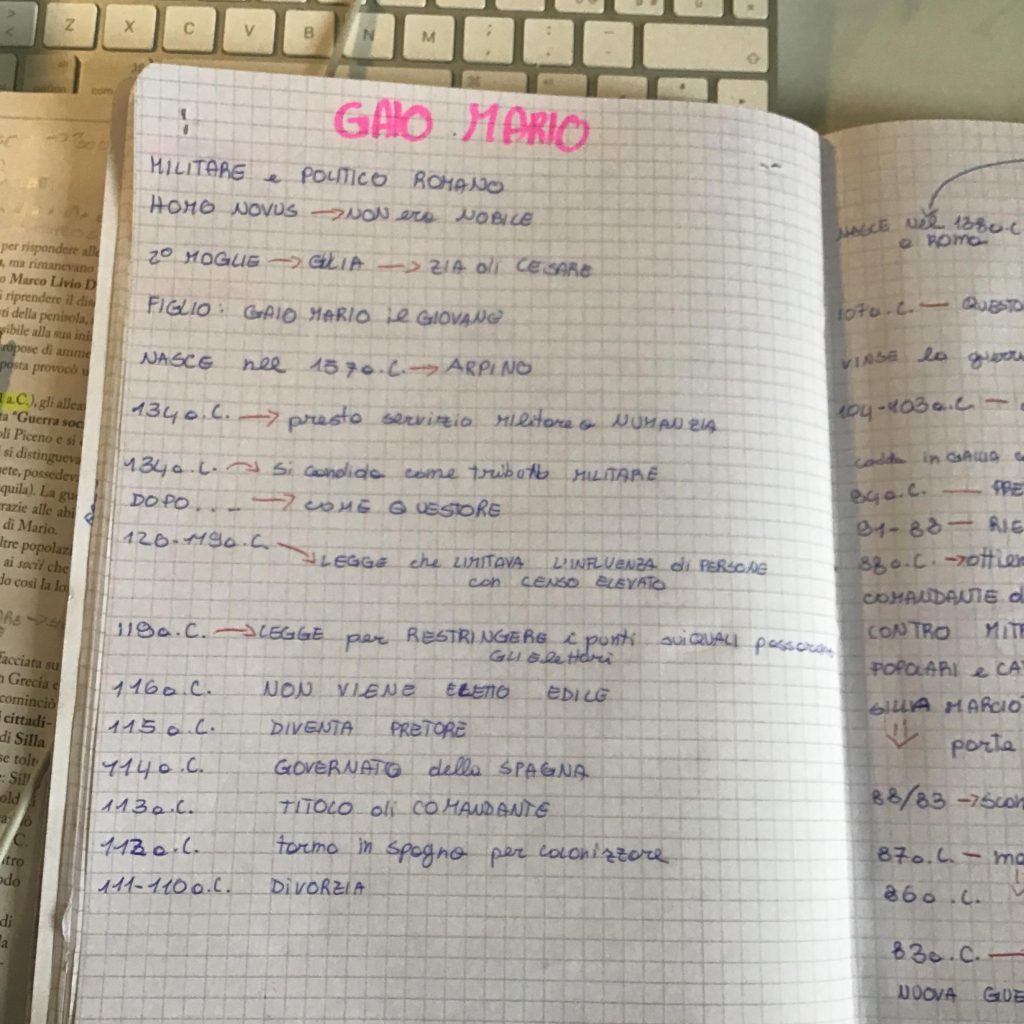 Z X C V B N M ; : -
GAIO MARIO
MILITARE e POLITICO ROMANO
HOMO NOVUS → NON era NOBILE
2° MOGLIE → GIULIA → ZIA di CESARE
FIGLIO: GAIO MARIO il GIOVANE
NASCE nel 157 a.C. → ARPINO
134 a.C. → presta servizio Militare a NUMANZIA
134 a.C. → si candida come tributo MILITARE
DOPO... → COME QUESTORE
120-119 a.C
→ LEGGE che LIMITAVA L'INFLUENZA di PERSONE
con CENSO ELEVATO
119 a.C. → LEGGE per RESTRINGERE i punti sui QUALI passavano
GLI Elettori
116 a.C. NON VIENE ELETTO EDILE
115 a.C. DIVENTA PRETORE
114 a.C. GOVERNATO della SPAGNA
113 a.C. TITOLO di COMANDANTE
112 a.C. torna in spagna per colonizzare
111-110 a.C. DIVORZIA
per rispondere alle
, ma rimanevano
o Marco Livio D
i riprendere il dis
ti della penisola,
sibile alla sua ini
ropose di amme
posta provocò u
a.C.), gli allea
ta "Guerra soc
oli Piceno e si
si distingueva
ete, possedeva
quila). La gu
razie alle abi
di Mario.
ltre popolaz
ai socii che
do così la lo
facciata su
n Grecia e
cominciò
cittadi-
di Silla
se tolt
: Sill
old
C.
tro
odo
di
la
NASCE nel 138 a.C
a ROMA
107 a.C. — QUESTO
VINSE la guerr
104-103 a.C —
cadde in GALLIA
89 a.C. — PRE
91-88 — RIE
88 a.C. → ottien
COMANDANTE d
CONTRO MITR
POPOLARI e CA
SILLA MARCIO
porta
88/83 → scon
87 a.C. — ma
86 a.C.
83 a.C. —
NUOVA GUE